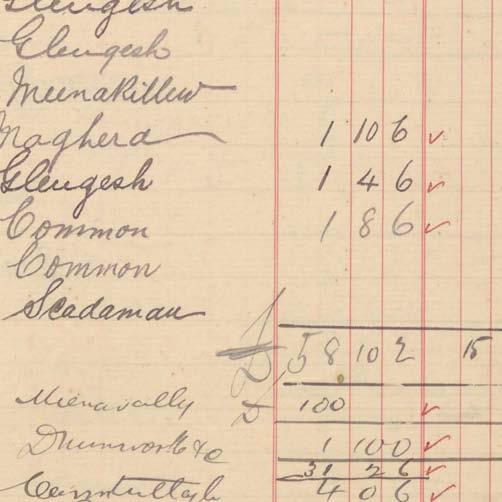 Glengesh
Glengesh
Meenakillew
Maghera 1 10 6 ✓
Glengesh 1 4 6 ✓
Common 1 8 6 ✓
Common
Scadaman
58 10 2 15
Meenavally D 100 ✓
1 100 ✓
31 2 6 ✓
4 0 6 ✓